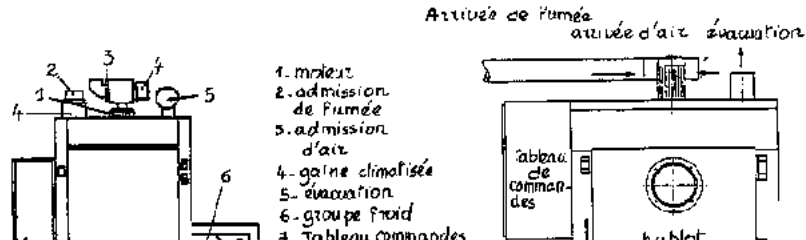 Arrivée de fumée
arrivée d'air évacuation
3
2
4
1
5
4
6
1. moteur
2. admission
de fumée
3. admission
d'air
4. gaine climatisée
5. évacuation
6. groupe froid
7. Tableau commandes
Tableau
de
comman-
des
hublot